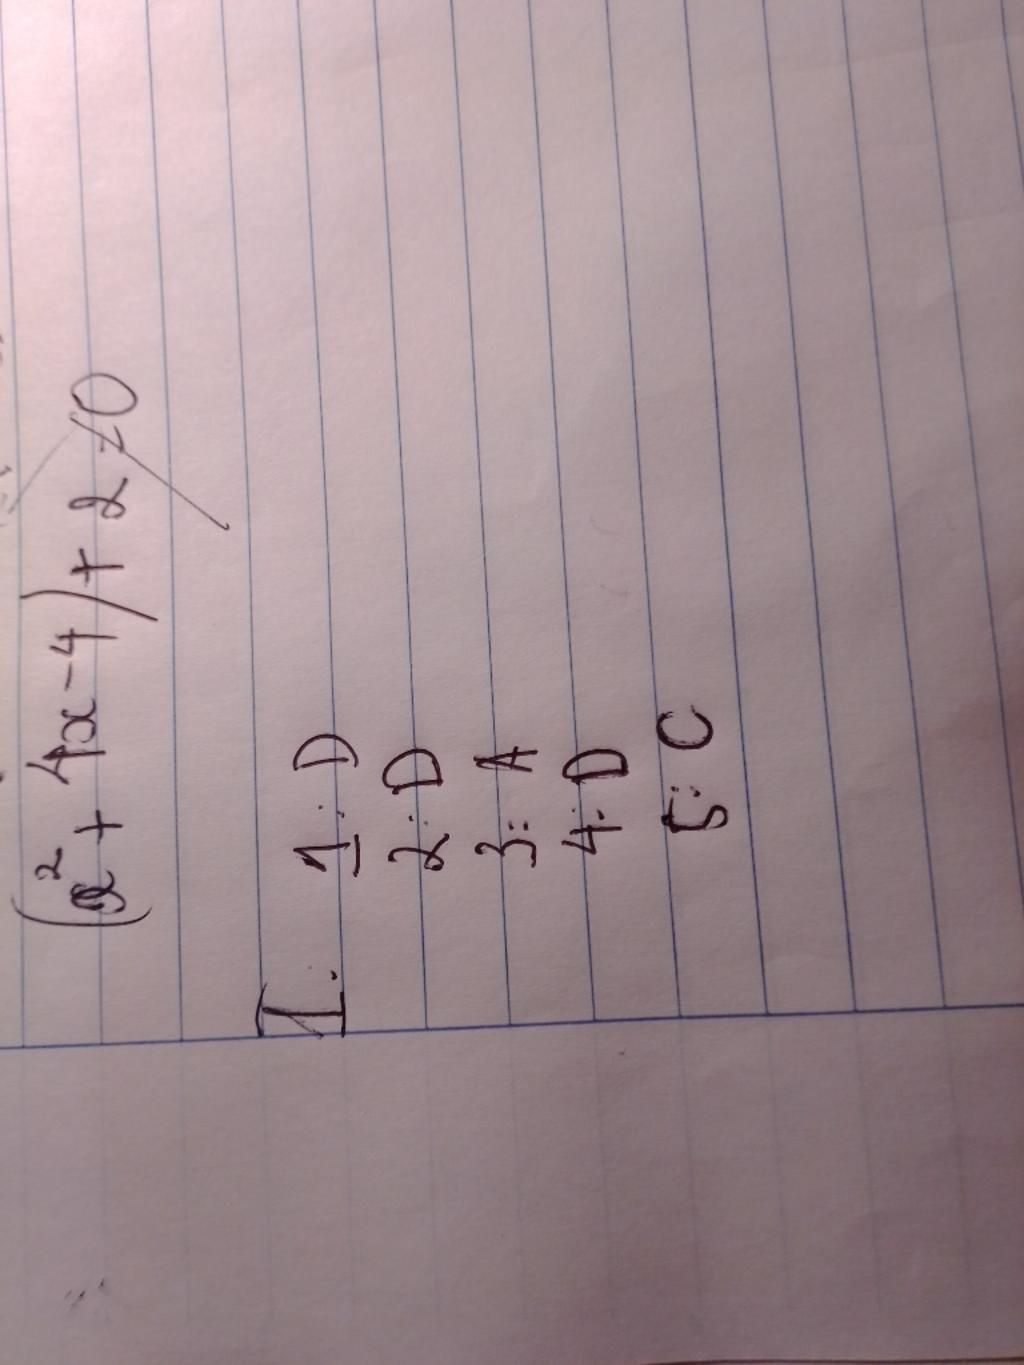 (x² + 4x - 4) + 2 < 0
I. 1: D
2: D
3: A
4: D
5: C